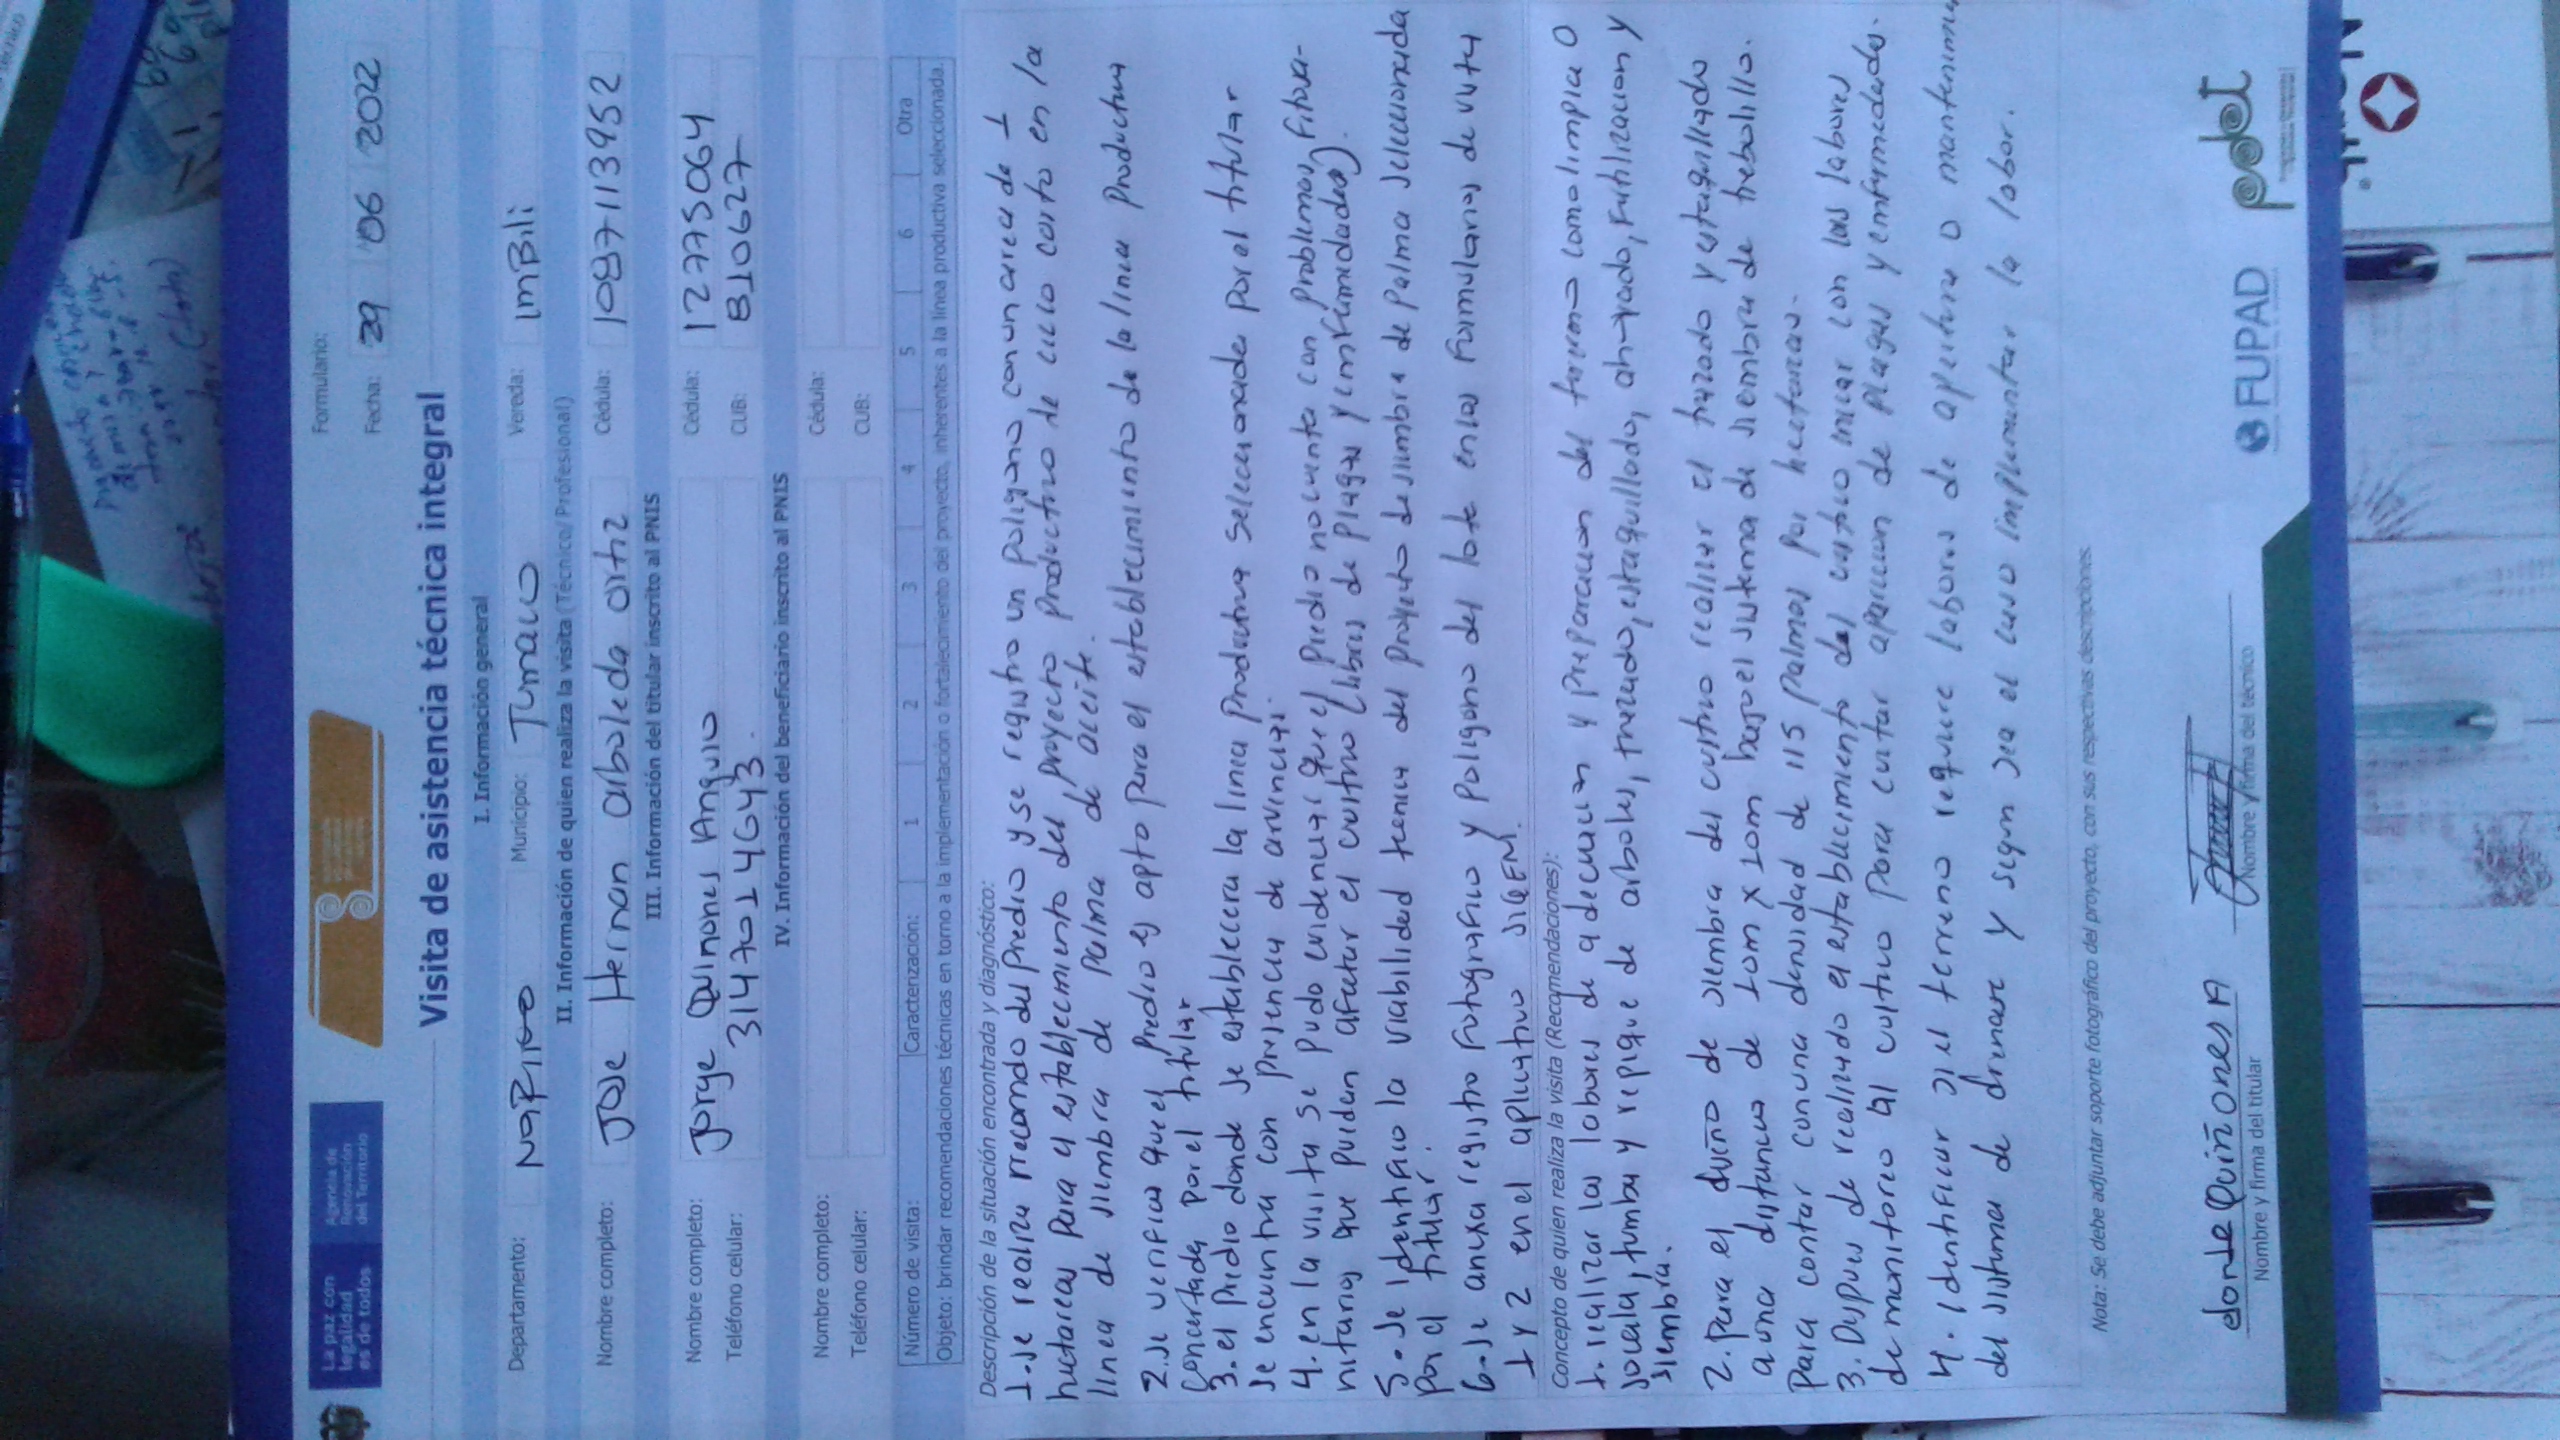 La paz con
legalidad
es de todos
Agencia de
Renovación
del Territorio
Formulario:
Fecha: 29 06 2022
Visita de asistencia técnica integral
I. Información general
Departamento: Nariño Municipio: Tumaco Vereda: imBili
II. Información de quien realiza la visita (Técnico/ Profesional)
Nombre completo: Jose Hernan arboleda ortiz Cédula: 1087113952
III. Información del titular inscrito al PNIS
Nombre completo: Jorge Quinones Angulo Cédula: 12775064
Teléfono celular: 3147014643. CUB: 810627
IV. Información del beneficiario inscrito al PNIS
Nombre completo: Cédula:
Teléfono celular: CUB:
Número de visita: Caracterización: 1 2 3 4 5 6 Otra
Objeto: brindar recomendaciones técnicas en torno a la implementación o fortalecimiento del proyecto, inherentes a la línea productiva seleccionada.
Descripción de la situación encontrada y diagnóstico:
1. se realiza rrecorrido del predio y se registro un poligono con un area de 1
hectareas para el establecimiento del proyecto productivo de ciclo corto en la
linea de siembra de palma de aceite.
2. se verifico que el predio es apto para el establecimiento de la linea productiva
concertada por el titular
3. el predio donde se establecera la linea productiva seleccionada por el titular
se encuentra con presencia de arvinceas.
4. en la visita se pudo evidenciar que el predio no cuenta con problemas fitosa-
nitarios que puedan afectar el cultivo (libres de plagas y enfermedades).
5. se identifico la viabilidad tecnica del proyecto de siembra de palma seleccionada
por el titular.
6. se anexa registro fotografico y poligono del lote en los formularios de visita
1 y 2 en el aplicativo SIGEM.
Concepto de quien realiza la visita (Recomendaciones):
1. realizar las labores de adecuacion y preparacion del terreno como limpia o
socala, tumba y repique de arboles, trazado, estaquillado, ahoyado, fertilizacion y
siembra.
2. para el diseño de siembra del cultivo realizar el trazado y estaquillado
a una distancia de 10m x 10m bajo el sistema de siembra de trebolillo.
para contar con una densidad de 115 palmas por hectareas.
3. Despues de realizado el establecimiento del cultivo iniciar con las labores
de monitoreo al cultivo para evitar aparicion de plagas y enfermedades.
4. identificar si el terreno requiere labores de apertura o mantenimie
del sistema de drenare y segun sea el caso implementar la labor.
Nota: Se debe adjuntar soporte fotográfico del proyecto, con sus respectivas descripciones.
Jorge Quiñones A
Nombre y firma del titular
Nombre y firma del técnico
FUPAD
pdet